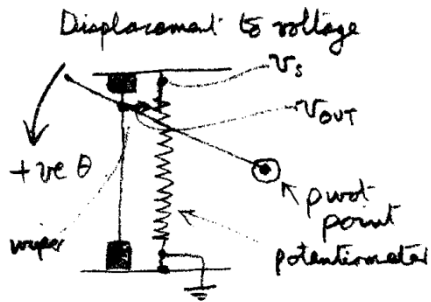 Displacement to voltage
Vs
VOUT
+ve θ
pivot
point
wiper
potentiometer